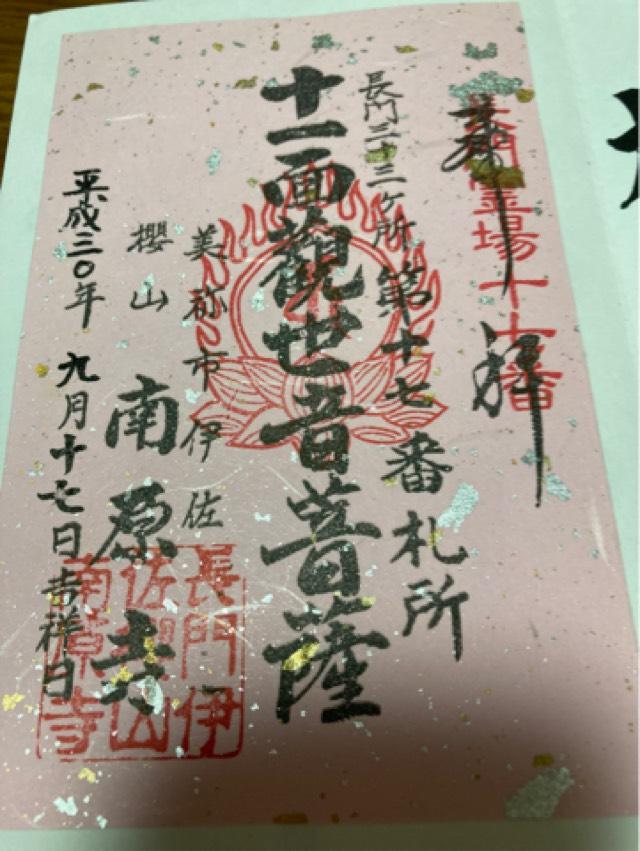 奉拝
長門霊場十七番
長門三十三ヶ所第十七番札所
十一面観世音菩薩
美祢市伊佐
櫻山南原寺
平成三〇年九月十七日吉祥日
長門伊
佐櫻山
南原寺